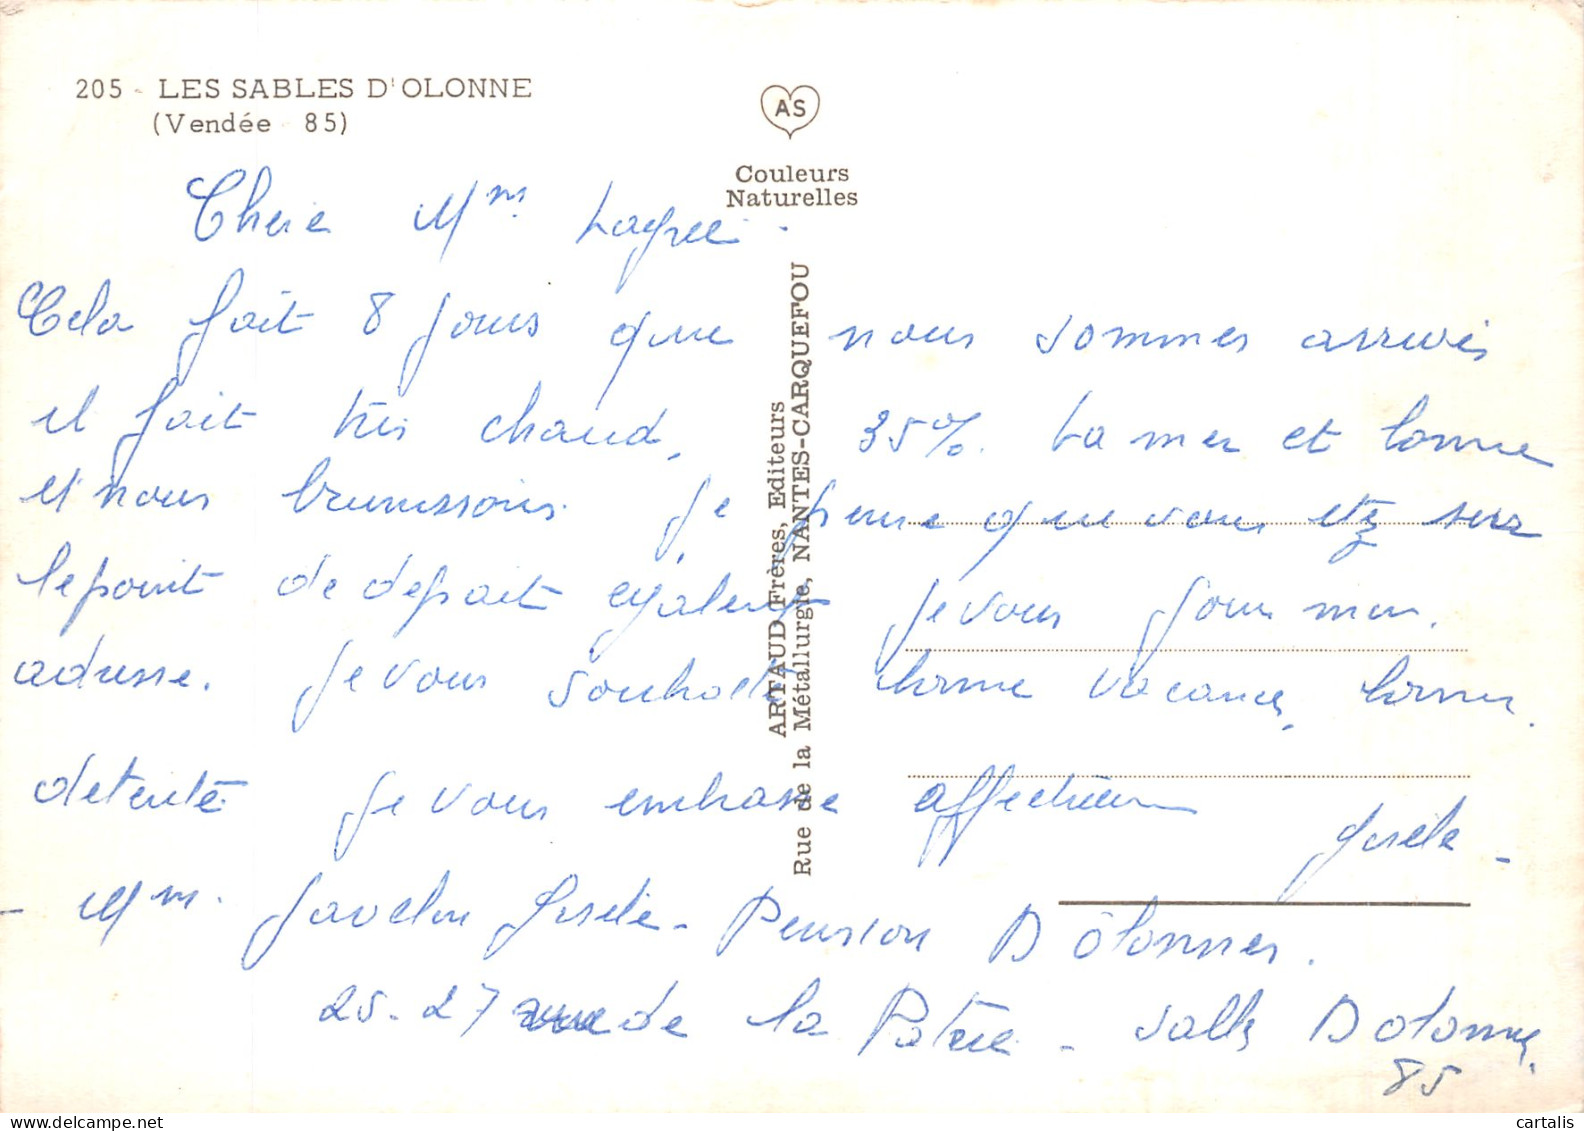 205 - LES SABLES D'OLONNE
(Vendée 85)
AS
Couleurs
Naturelles
ARTAUD Frères, Editeurs
Rue de la Métallurgie, NANTES-CARQUEFOU
Cherie Mm Lagrée.
Cela fait 8 jours que nous sommes arrivés
il fait très chaud, 35%. La mer et bonne
et nous brunissons. Je pense que vous etz sur
le point de depart egalement je vous
adresse. Je vous souhaite bonne vacances, bonne
detente Je vous embrasse affectueu
Gisèle -
- Mm. Javelou Gisèle - Pension D'ôlonnes.
25-27 rue de la Patrie - Sable D'olonnes,
85
cartalis